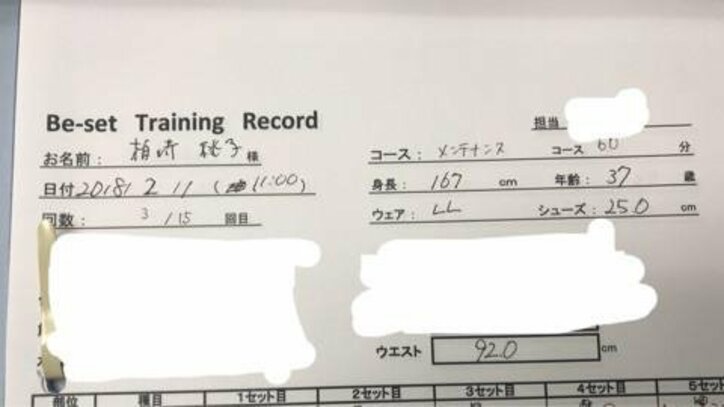 担当
Be-set Training Record
お名前: 柏崎 桃子 様
コース: メンテナンス コース 60 分
日付 2018 / 2 11 ( 11:00)
身長: 167 cm 年齢: 37 歳
回数: 3 / 15 回目
ウェア: LL シューズ: 25.0 cm
ウエスト 92.0 cm
部位 種目 1セット目 2セット目 3セット目 4セット目 5セット目